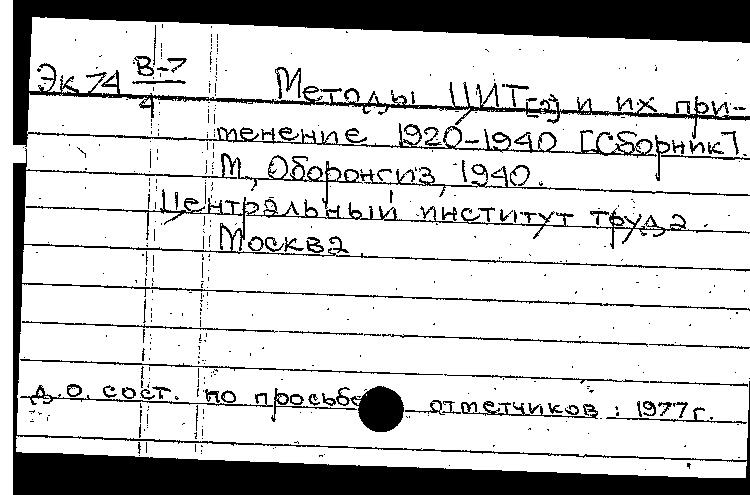 Эк 74 В-7/4
Методы ЦИТ[а] и их при-
менение 1920-1940 [Сборник].
М., Оборонгиз, 1940.
Центральный институт труда.
Москва.
д.о. сост. по просьбе отметчиков: 1977г.